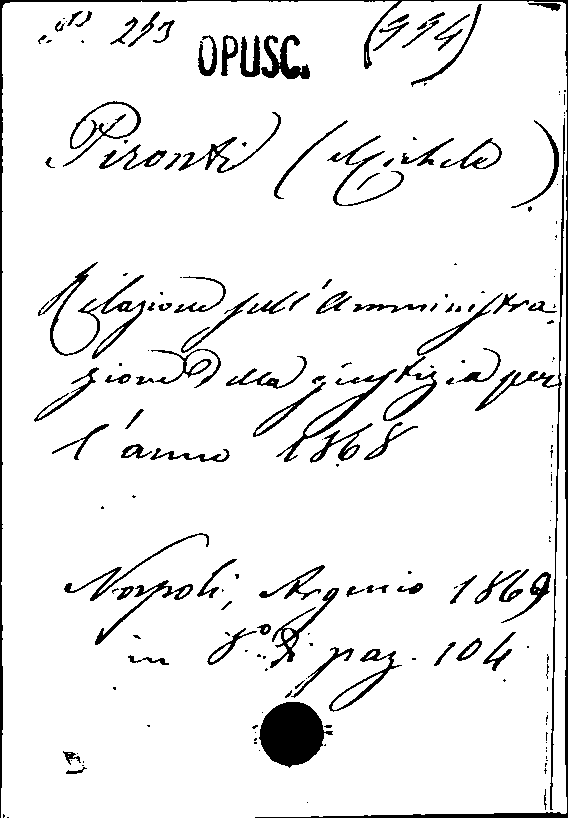 213 OPUSC. (994)
Pironti (Michele)
Relazione sull'Amministra-
zione della giustizia per
l'anno 1868
Napoli, Argenio 1869
in 8º di pag. 104